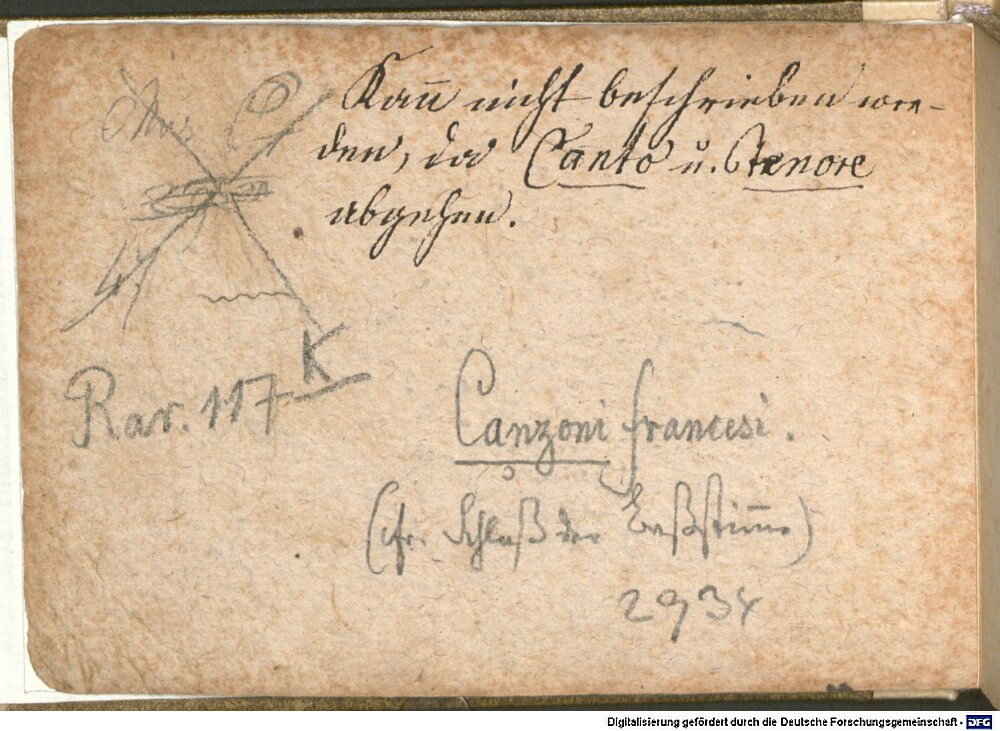 Kan̄ nicht beschrieben wer-
den, da Canto u. Tenore
abgehen.
Rar. 117
K
Canzoni francesi.
(cfr. Schluß der Baßstim̄e)
2934
Digitalisierung gefördert durch die Deutsche Forschungsgemeinschaft - DFG